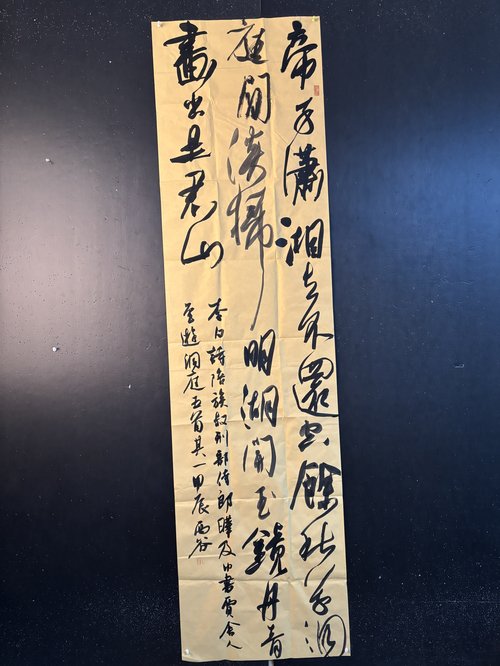 帝子瀟湘去不還空餘秋草洞
庭間淡掃明湖開玉鏡丹青
畫出是君山
李白詩陪族叔刑部侍郎曄及中書賈舍人
至遊洞庭五首其一甲辰西谷